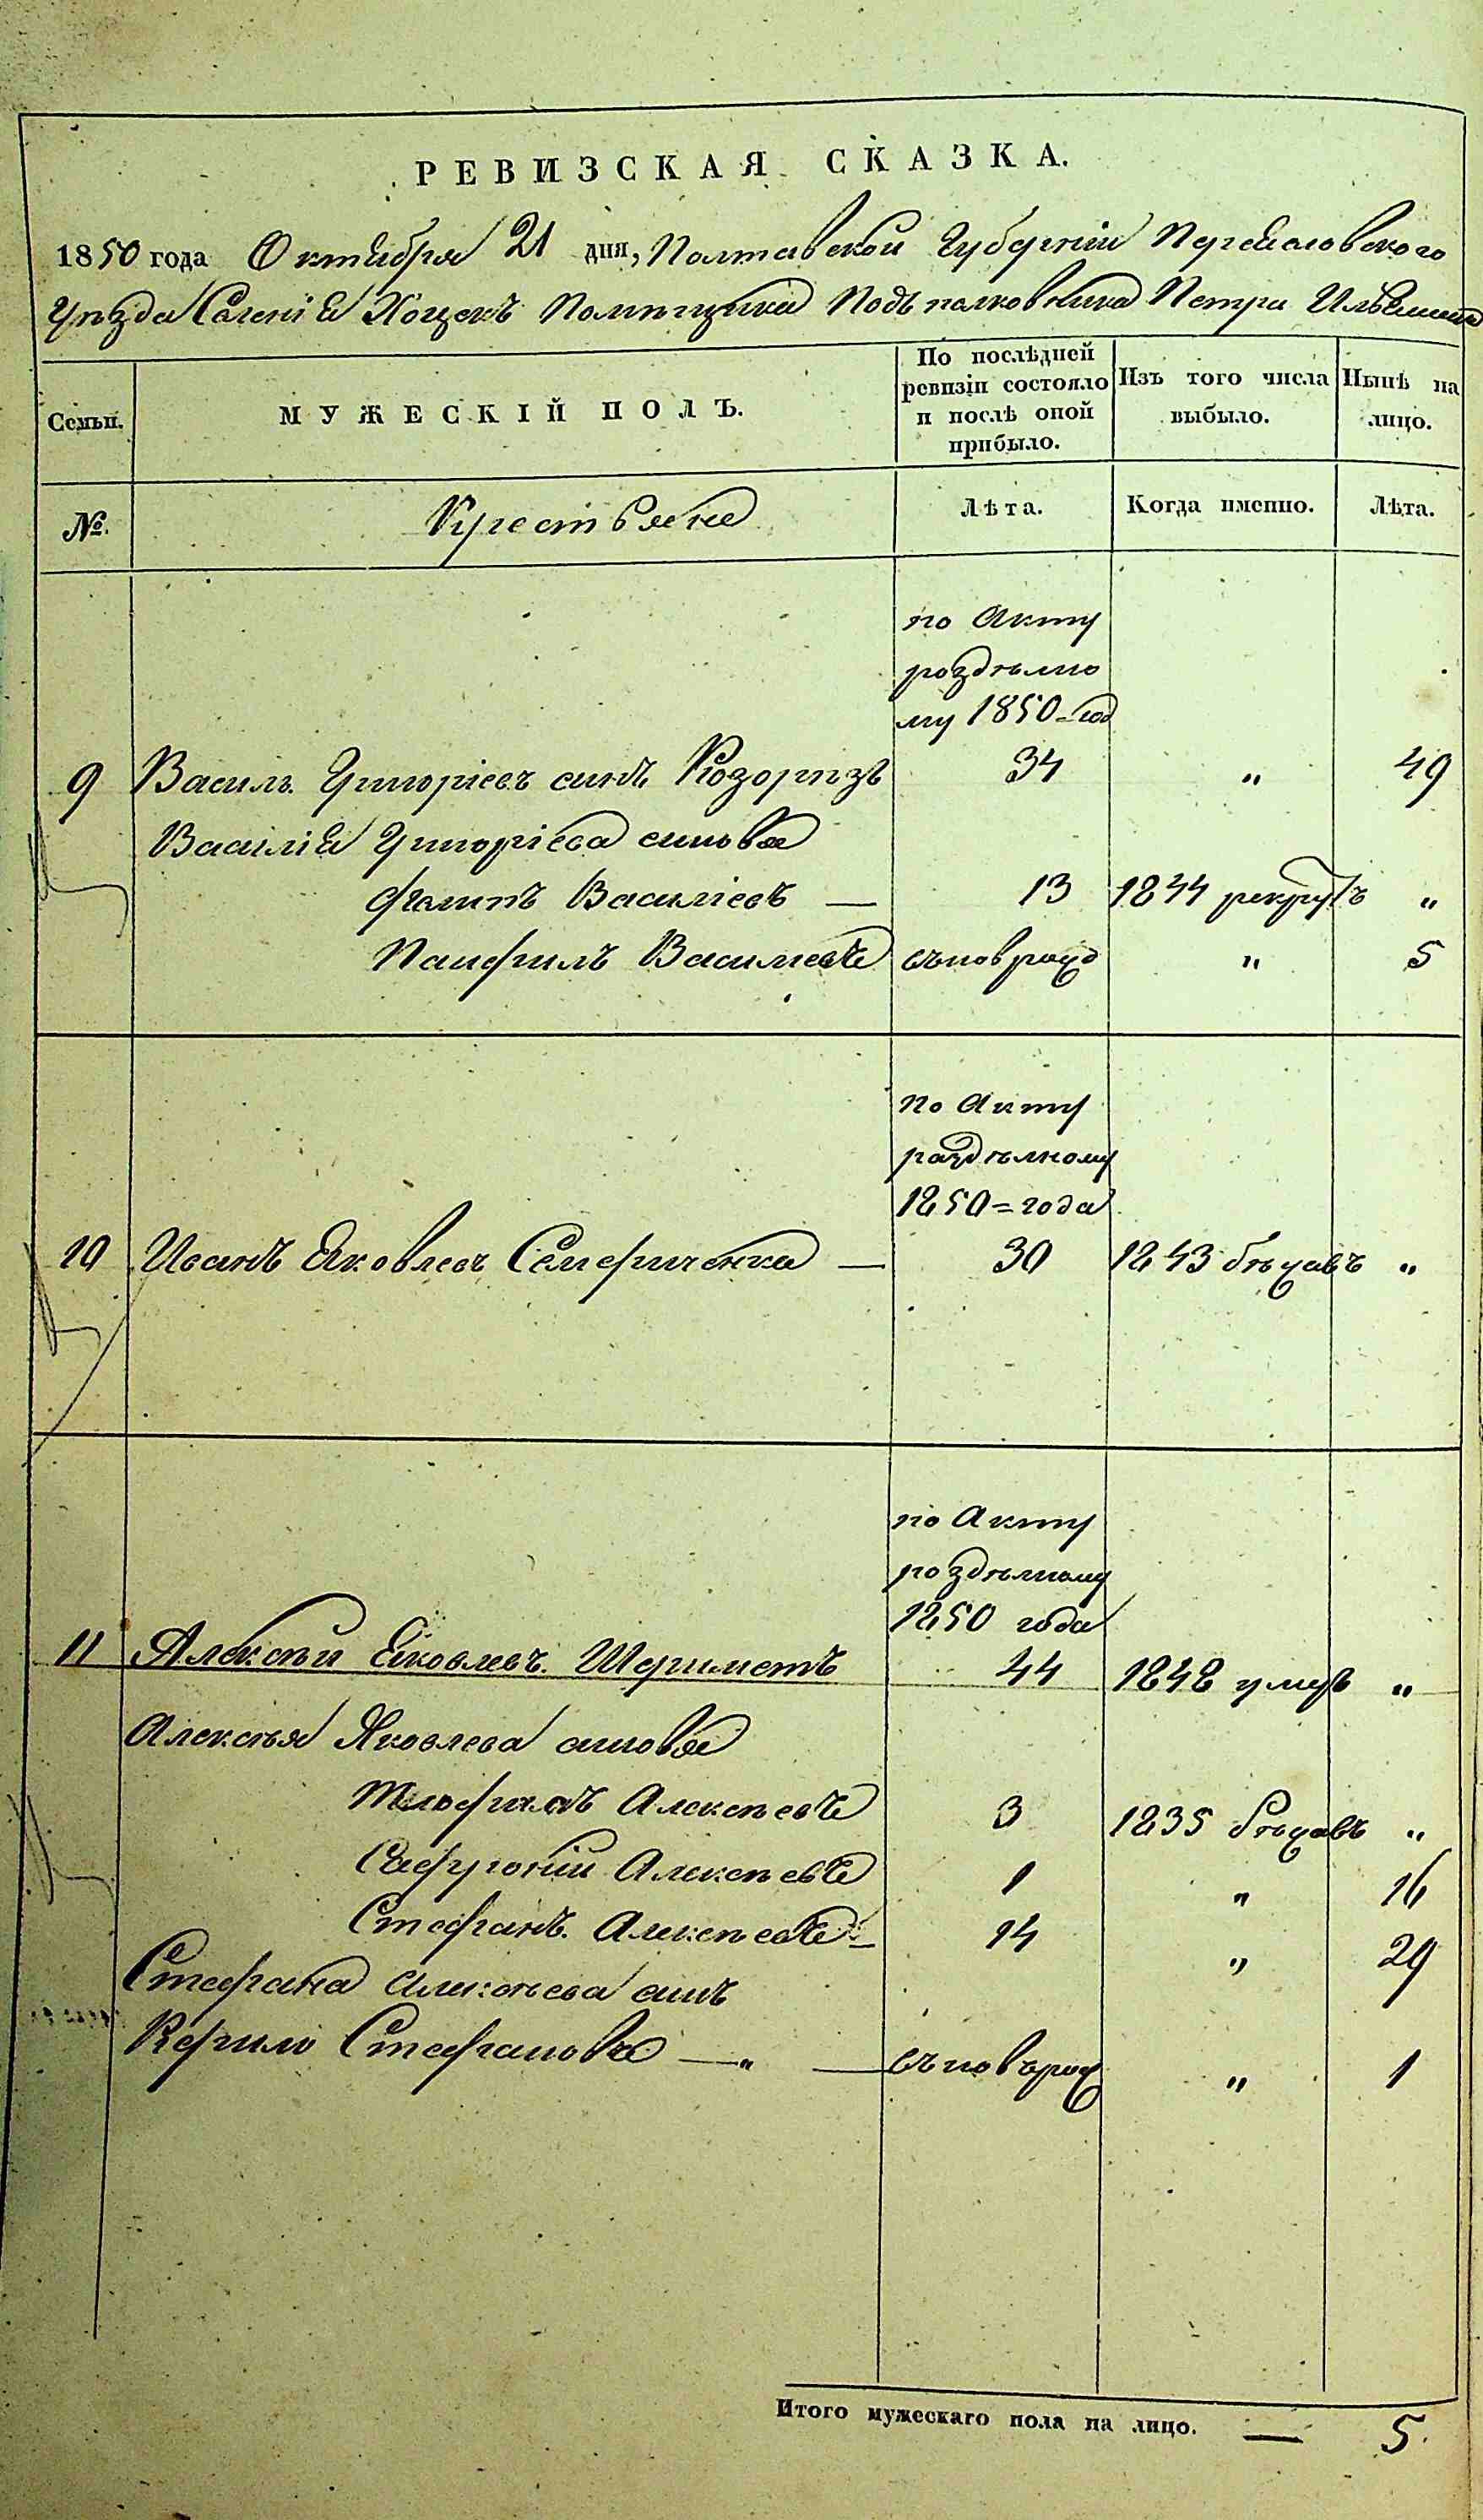 РЕВИЗСКАЯ СКАЗКА.
1850 года Октября 21 дня, Полтавской Губерніи Переяславского
Уѣзда Селенія Хоцекъ Помѣщика Подполковника Петра Ильяшенка
Семьи.
МУЖЕСКІЙ ПОЛЪ.
По послѣдней ревизіи состояло и послѣ оной прибыло.
Изъ того числа выбыло.
Нынѣ на лицо.
№.
Крестьяне
Лѣта.
Когда именно.
Лѣта.
по Акту
роздѣлно
му 1850=год
9 Василь Григоріевъ синъ Козоризъ 34 " 49
Василія Григоріева синовья
Филипъ Василіевъ — 13 1844 рекрутъ "
Панфилъ Василіевъ съноврожд " 5
по Акту
раздѣлному
1850=года
10 Иванъ Яковлевъ Семериченко — 30 1843 бѣжавъ "
по Акту
роздѣлному
1850 года
11 Алексѣй Яковлевъ Шереметъ 44 1848 умеръ "
Алексѣя Яковлева синовья
Алексѣевъ 3 1835 бѣжавъ "
Сафроній Алексѣевъ 1 " 16
Стефанъ Алексѣевъ — 14 " 29
Стефана Алексѣева синъ
Кирило Стефановъ — " — съноврож " 1
Итого мужескаго пола на лицо. — 5.